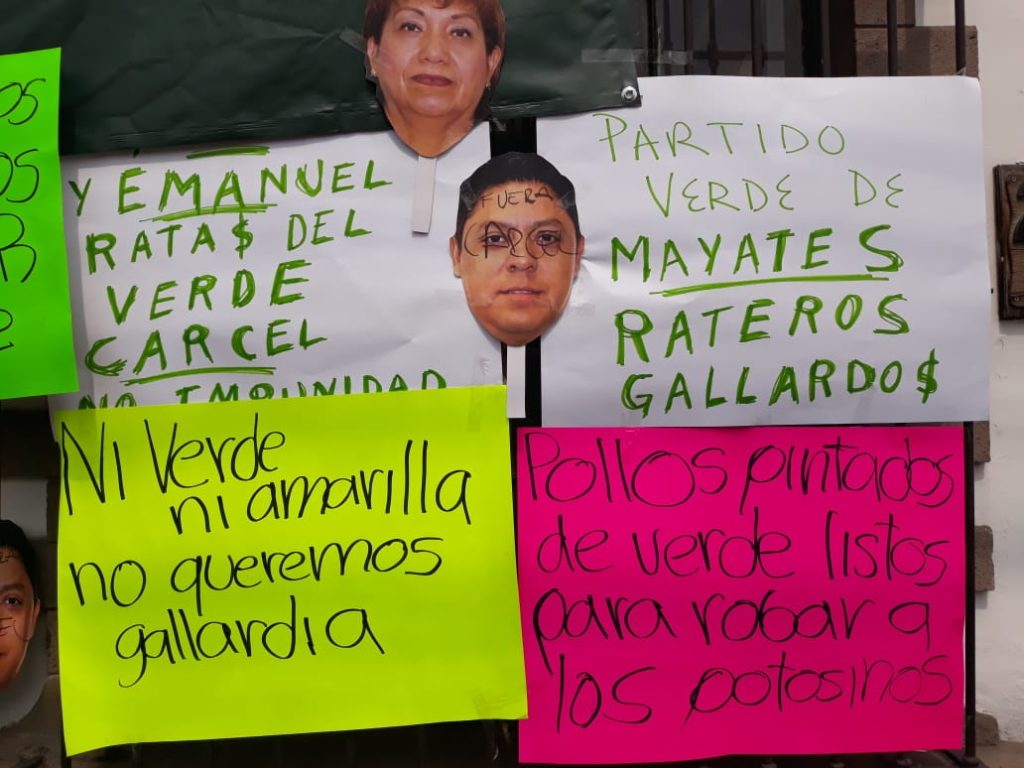 Y EMANUEL
RATA$ DEL
VERDE
CARCEL
NO IMPUNIDAD
FUERA
PARTIDO
VERDE DE
MAYATES
RATEROS
GALLARDO$
Ni Verde
ni amarilla
no queremos
gallardia
Pollos pintados
de verde listos
para robar a
los potosinos